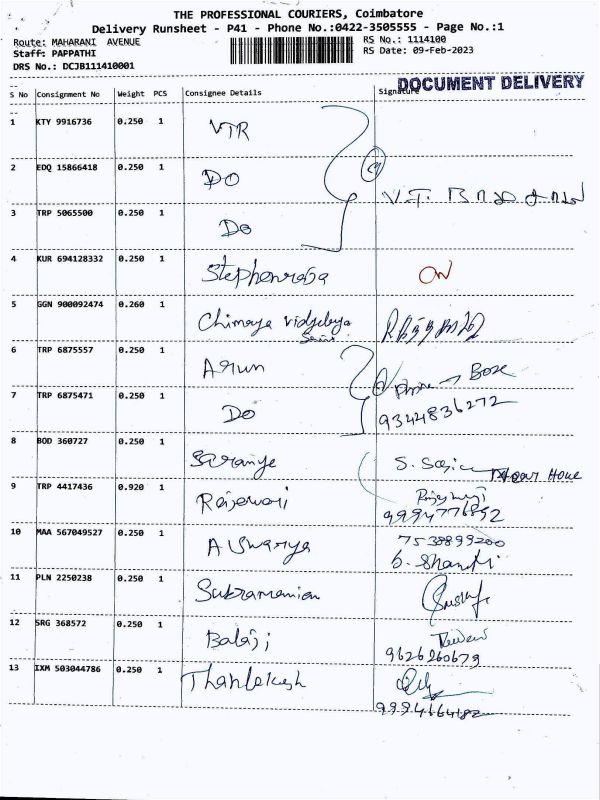 THE PROFESSIONAL COURIERS, Coimbatore
Delivery Runsheet - P41 - Phone No.:0422-3505555 - Page No.:1
Route: MAHARANI AVENUE
RS No.: 1114100
Staff: PAPPATHI
RS Date: 09-Feb-2023
DRS No.: DCJB111410001
DOCUMENT DELIVERY
S No Consignment No Weight PCS Consignee Details Signature
1 KTY 9916736 0.250 1 VTR
2 EDQ 15866418 0.250 1 DO
3 TRP 5065500 0.250 1 Do
4 KUR 694128332 0.250 1 Stephenraja
5 GGN 900092474 0.260 1 Chimaya vidyalaya
6 TRP 6875557 0.250 1 Arun phone → Box
7 TRP 6875471 0.250 1 Do 9344836272
8 BOD 360727 0.250 1 Saranya S.
9 TRP 4417436 0.920 1 Rajeswari 9994776892
10 MAA 567049527 0.250 1 Aiswarya 7538899200
b. Shanthi
11 PLN 2250238 0.250 1 Subramanian
12 SRG 368572 0.250 1 Balaji 9626260679
13 IXM 503044786 0.250 1 9994664182